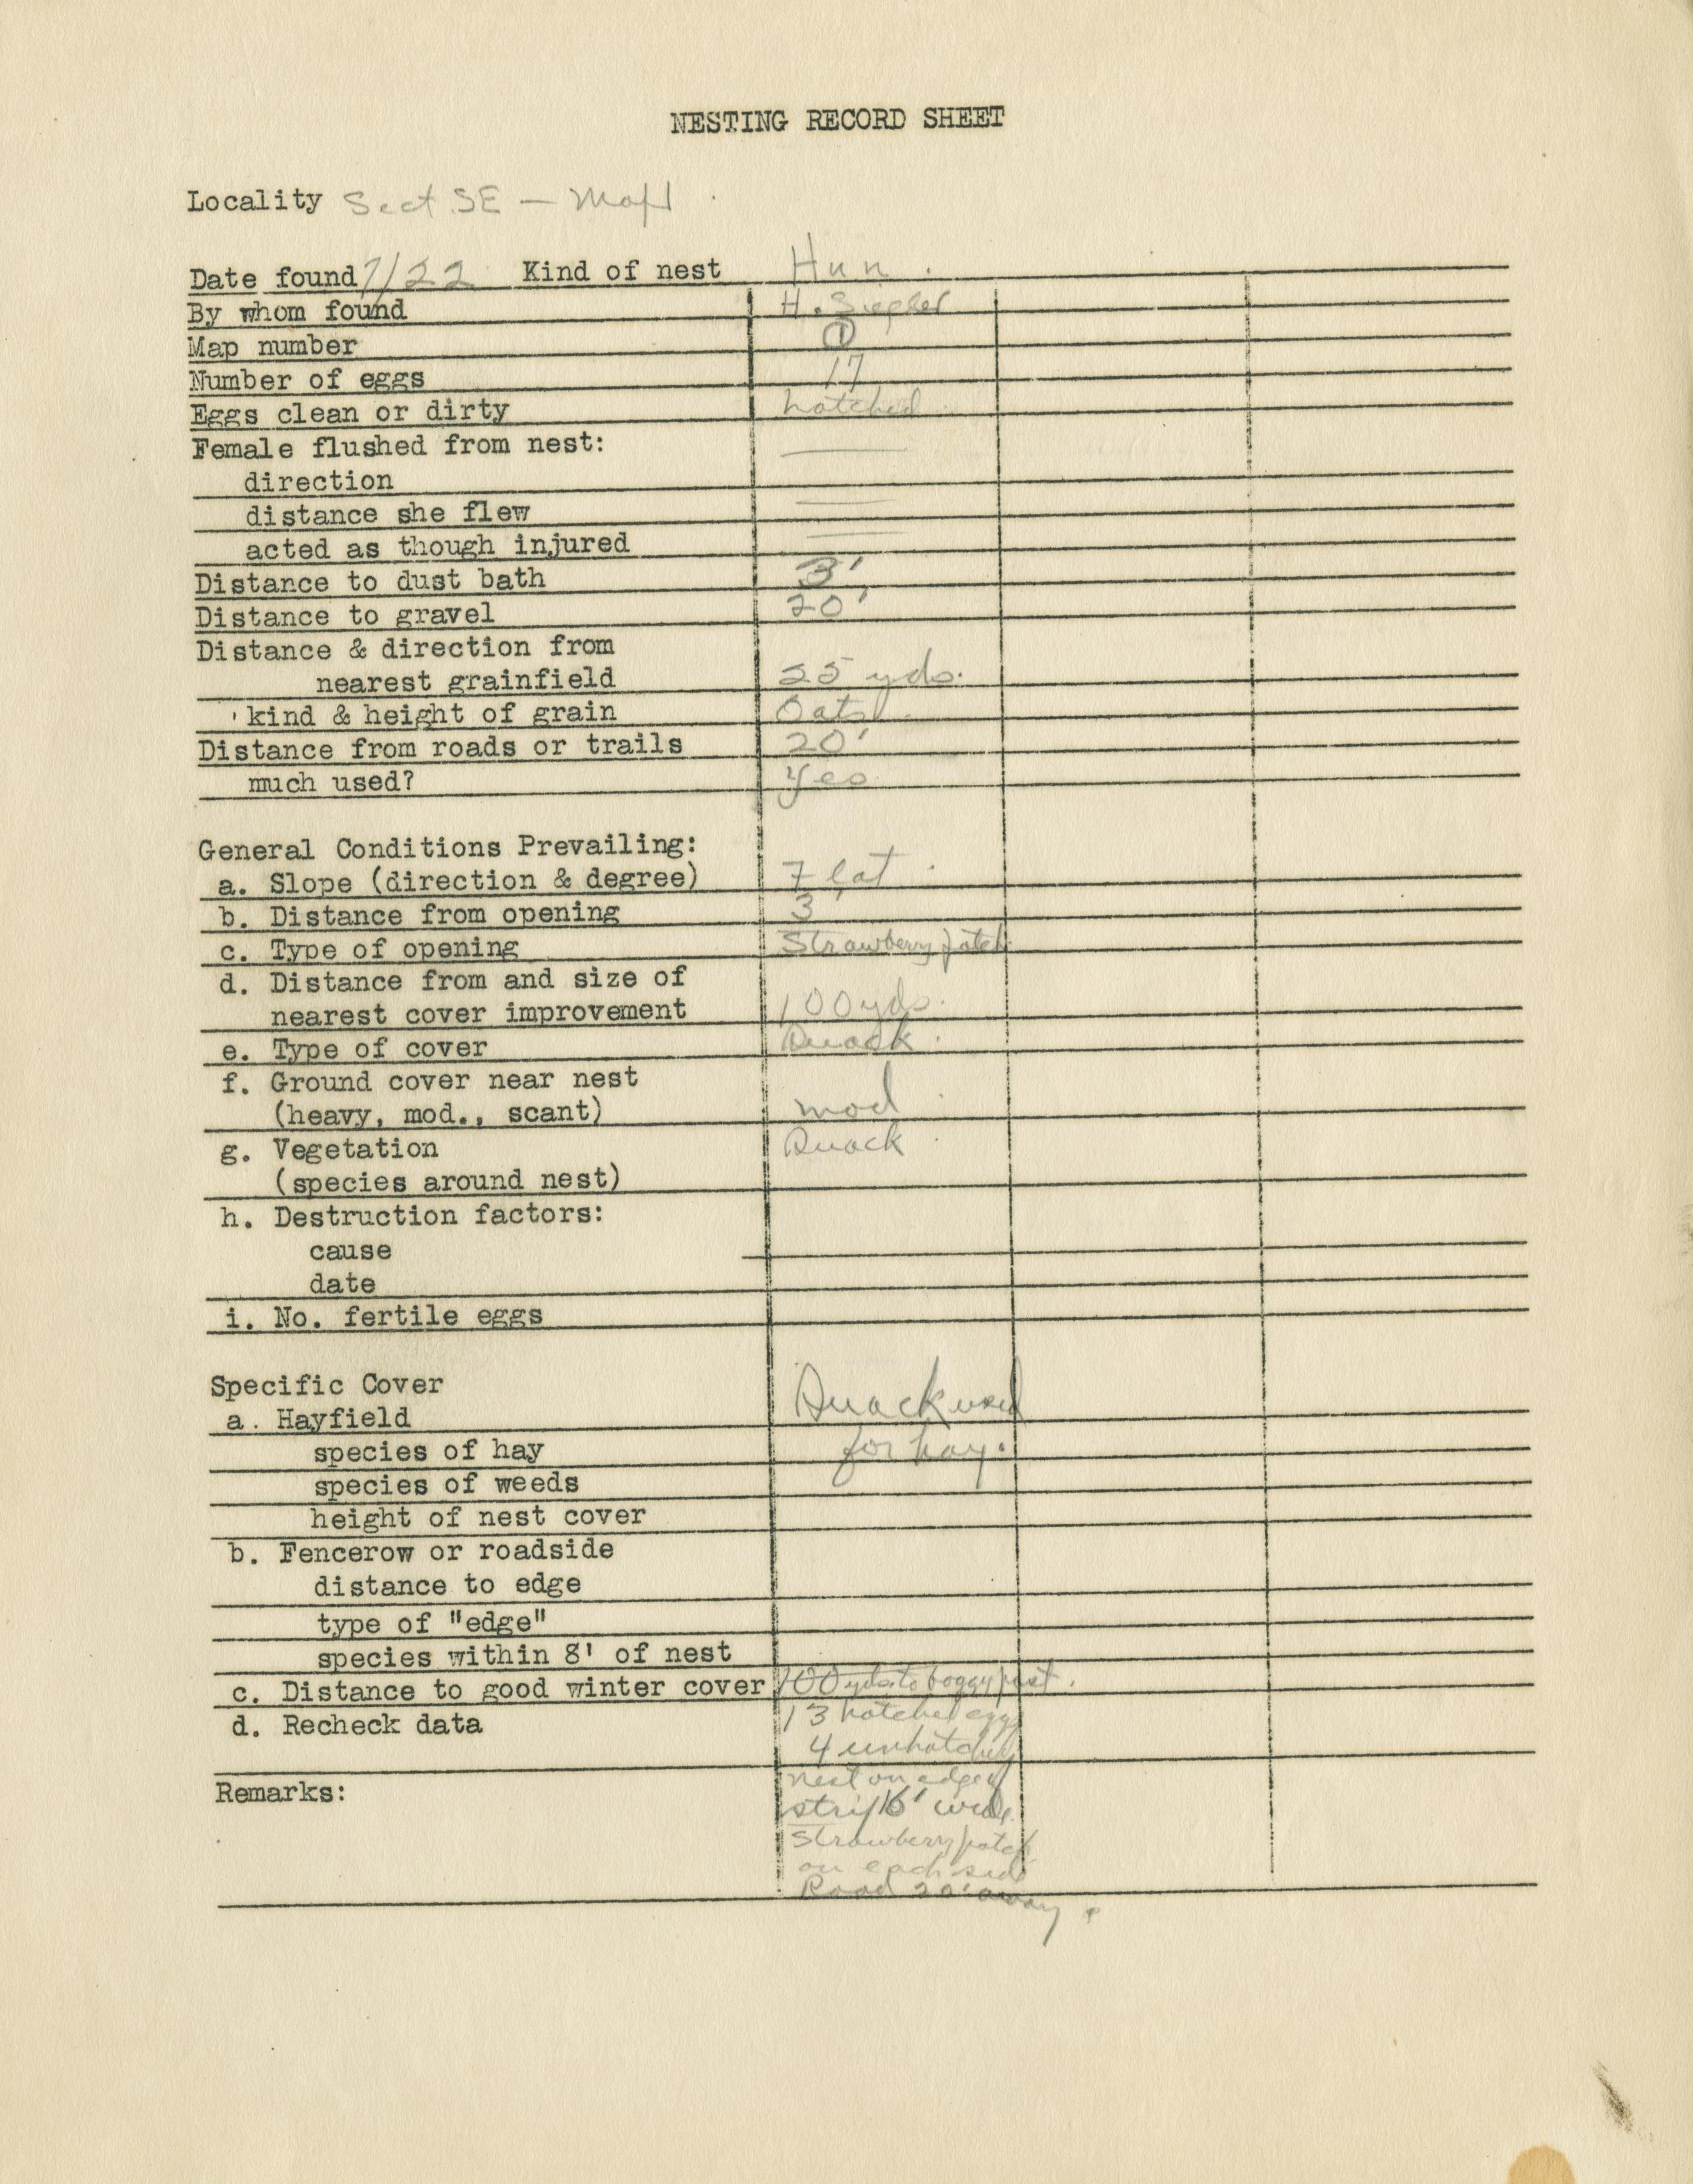 NESTING RECORD SHEET
Locality Sect. SE — Map 1
Date found 7/22 Kind of nest Hun.
By whom found H. Siegler
Map number 1
Number of eggs 17
Eggs clean or dirty hatched
Female flushed from nest:
direction
distance she flew
acted as though injured
Distance to dust bath 3'
Distance to gravel 20'
Distance & direction from
nearest grainfield 25 yds.
kind & height of grain Oats
Distance from roads or trails 20'
much used? Yes
General Conditions Prevailing:
a. Slope (direction & degree) Flat
b. Distance from opening 3'
c. Type of opening Strawberry patch
d. Distance from and size of
nearest cover improvement 100 yds.
e. Type of cover Quack
f. Ground cover near nest
(heavy, mod., scant) mod
g. Vegetation Quack
(species around nest)
h. Destruction factors:
cause
date
i. No. fertile eggs
Specific Cover
a. Hayfield Quack used
species of hay for hay.
species of weeds
height of nest cover
b. Fencerow or roadside
distance to edge
type of "edge"
species within 8' of nest
c. Distance to good winter cover 100 yds. to boggy past.
d. Recheck data 13 hatched eggs
4 unhatched
Remarks: nest on edge of
strip 16' wide.
Strawberry patch
on each side
Road 20' away.